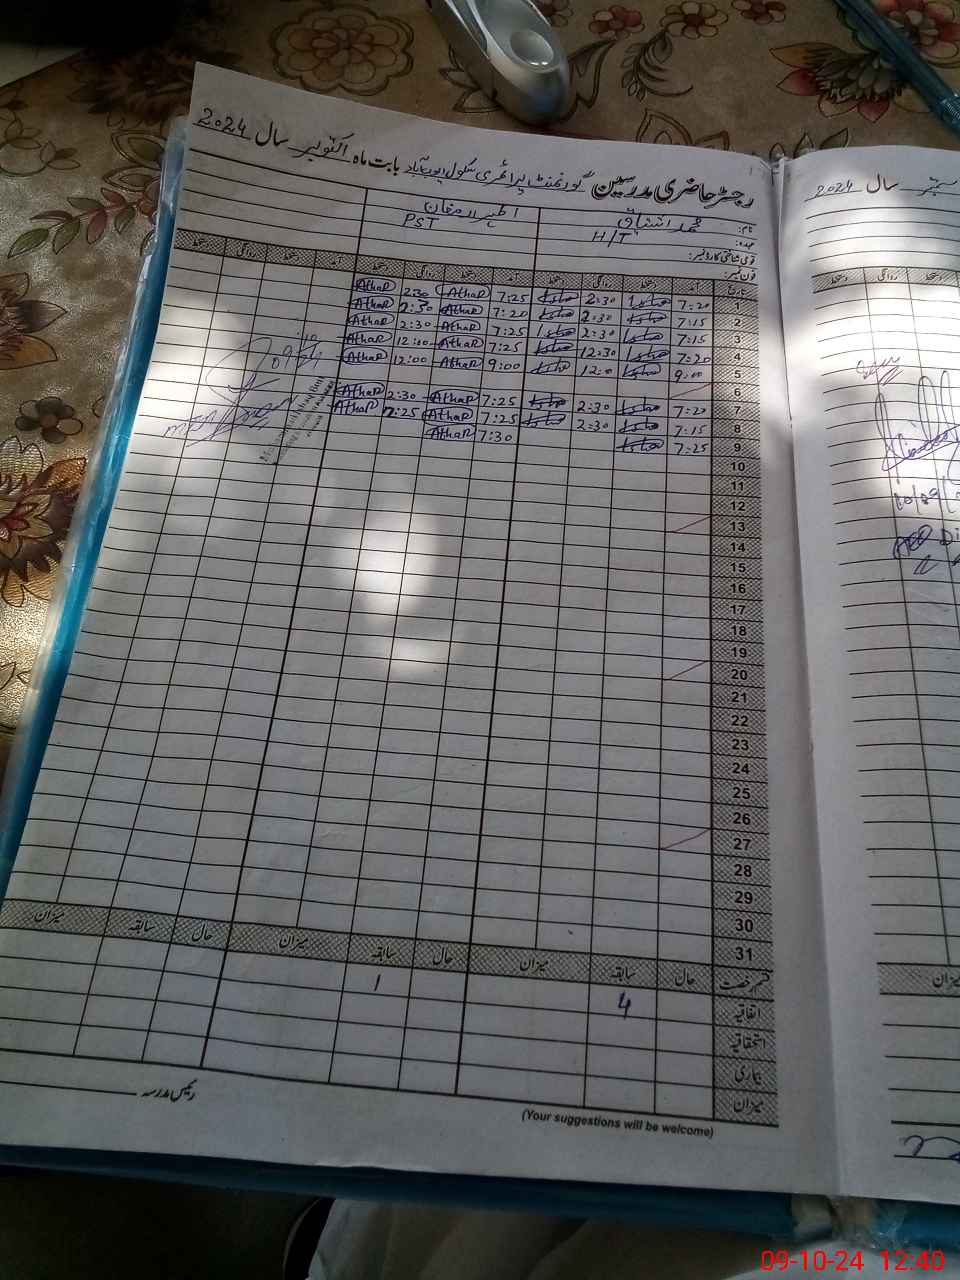 رجسٹر حاضری مدرسین گورنمنٹ پرائمری سکول بابت ماہ اکتوبر سال 2024
نام: محمد اشتیاق
عہدہ: H/T PST
قومی شناختی کارڈ نمبر:
فون نمبر:
تاریخ آمد دستخط روانگی دستخط آمد دستخط روانگی دستخط آمد دستخط روانگی دستخط
1 7:20 2:30 7:25 AthaR 2:30 AthaR
2 7:15 2:30 7:20 AthaR 2:30 AthaR
3 7:15 2:30 7:25 AthaR 2:30 AthaR
4 7:20 12:30 7:25 AthaR 12:00 AthaR
5 9:00 12:0 9:00 AthaR 12:00 AthaR
6
7 7:20 2:30 7:25 AthaR 2:30 AthaR
8 7:15 2:30 7:25 AthaR 7:25 AthaR
9 7:25 7:30 AthaR
10
11
12
13
14
15
16
17
18
19
20
21
22
23
24
25
26
27
28
29
30
31
قسم رخصت حال سابقہ میزان حال سابقہ میزان حال سابقہ میزان
اتفاقیہ 4 1
استحقاقیہ
بیماری
میزان
رئیس مدرسہ
(Your suggestions will be welcome)
سال 2024
دستخط روانگی دستخط
میزان
09-10-24 12:40